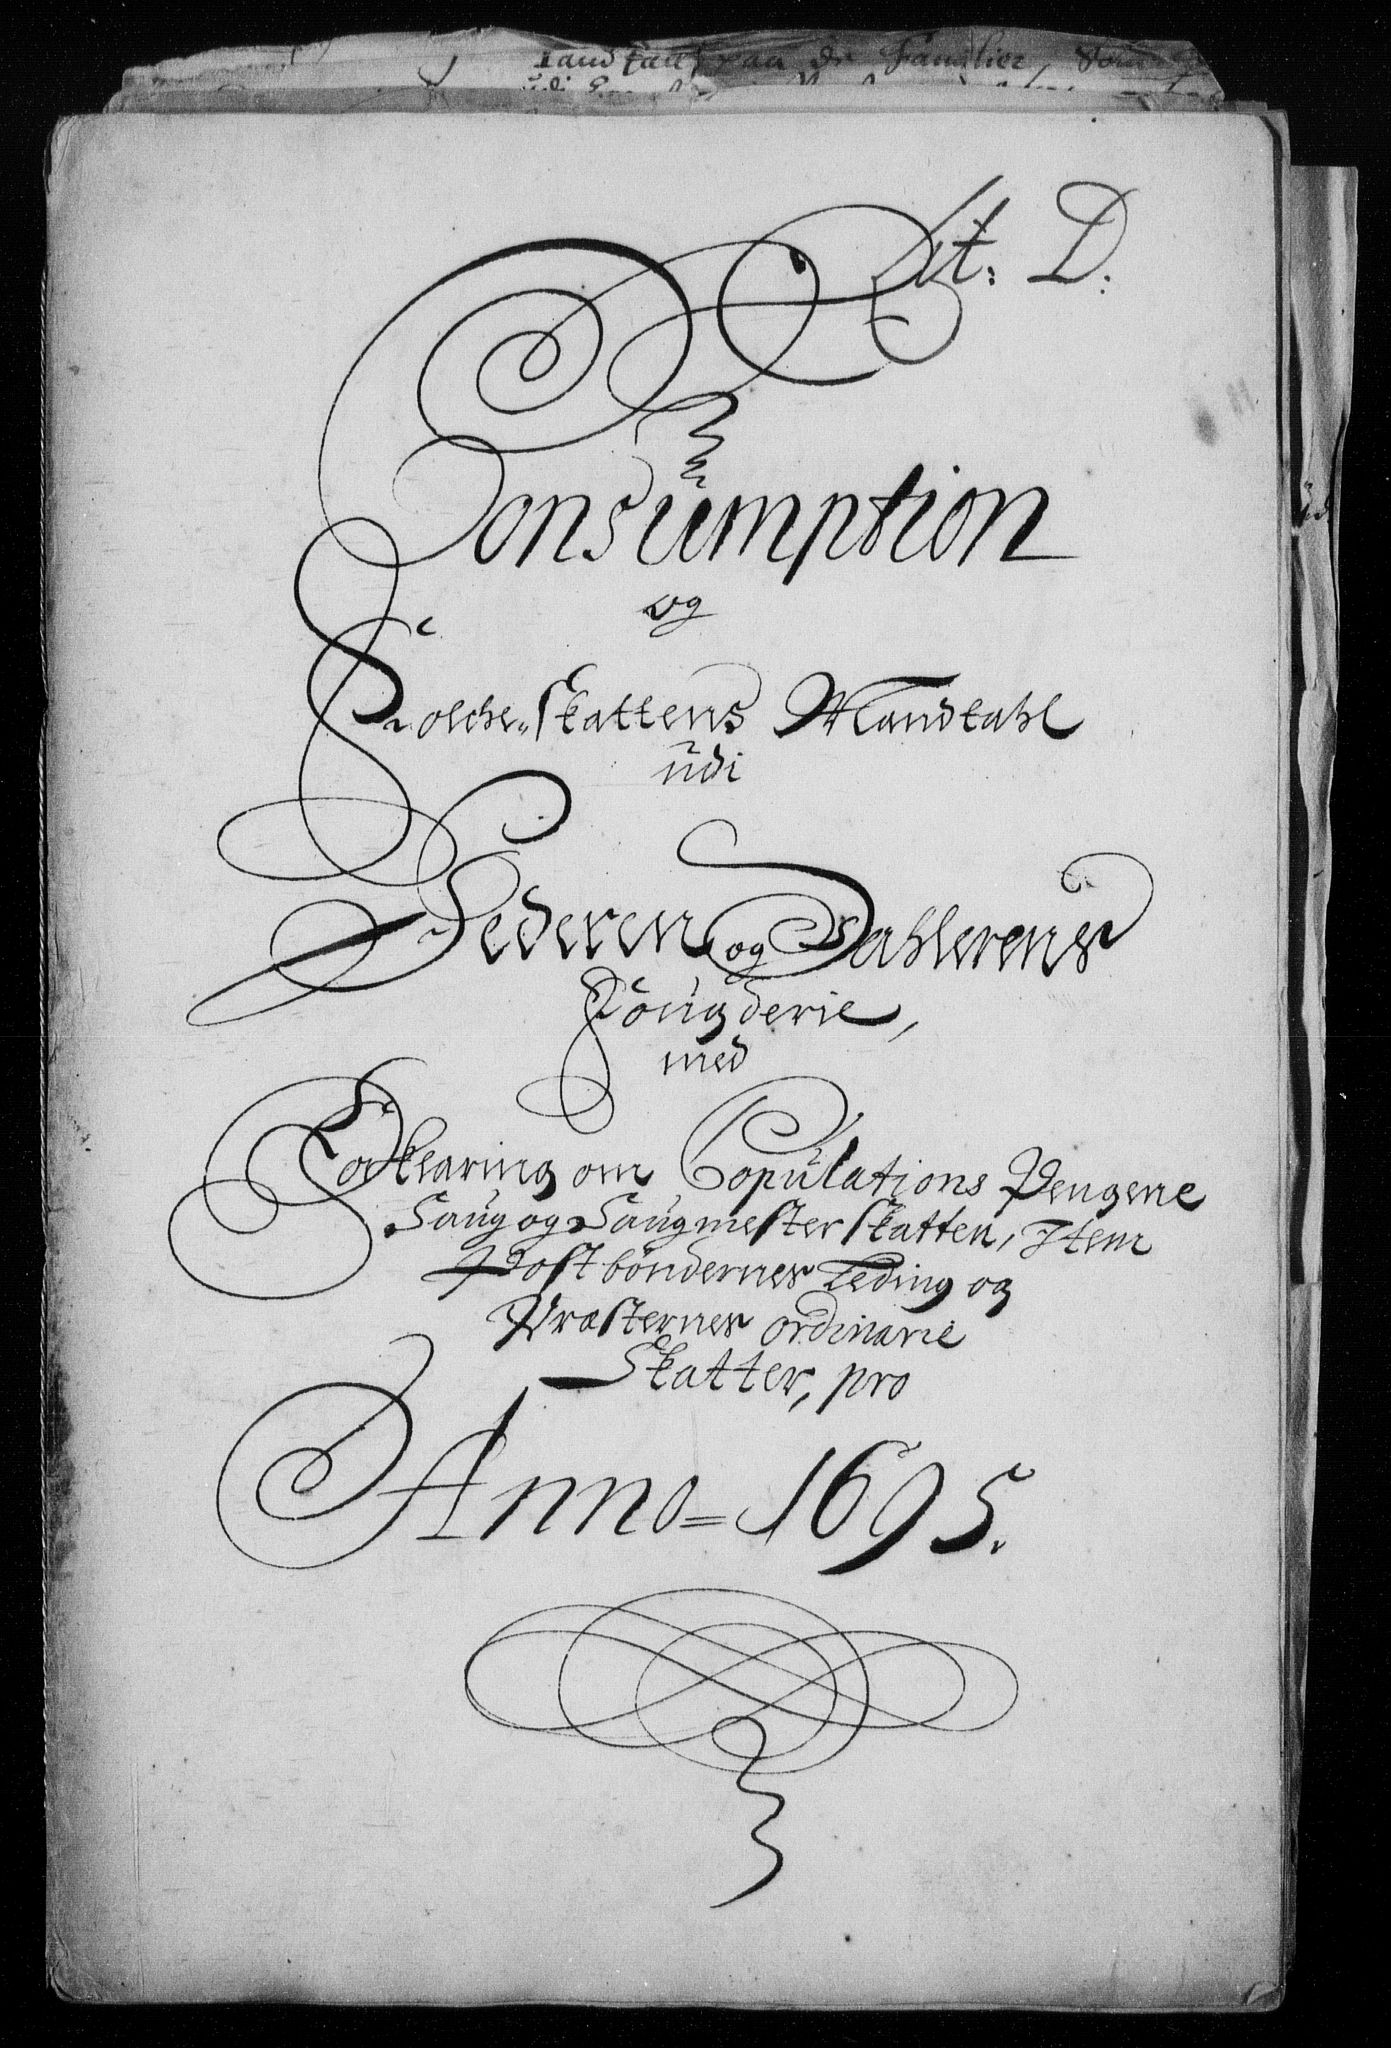 Mandtall paa de Familier, som
Lit: D:
Consumption
og
Folche-Skattens Mandtahl
udi
Jederen og Dahlerens
Fougderie,
med
Forklaring om Copulations Pengene
Saug og Saugmester Skatten, Item
Postbøndernes Leding og
Præsternes ordinarie
Skatter, pro
Anno = 1695.